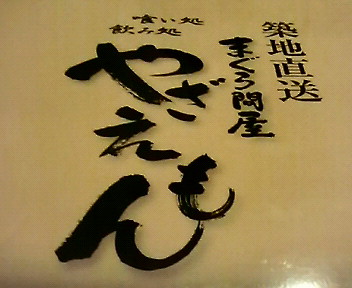 築地直送
まぐろ問屋
喰い処
飲み処
やざえもん